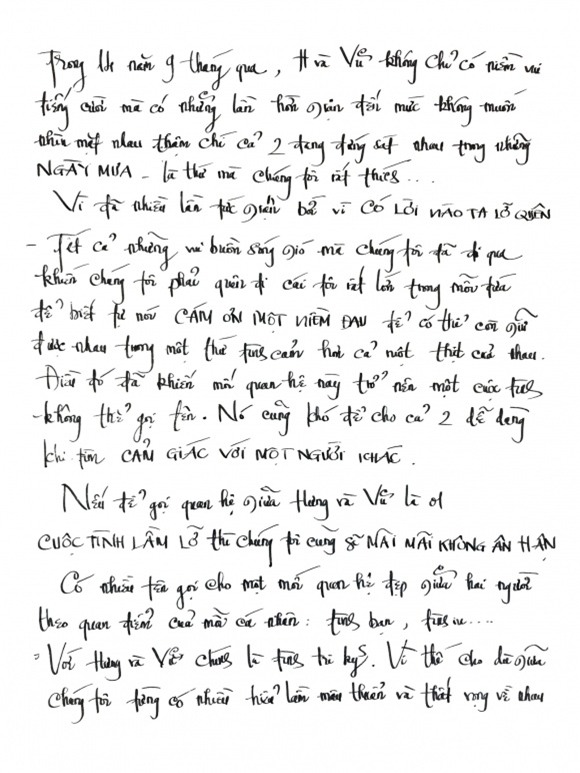 Trong 11 năm 9 tháng qua, H và Vũ không chỉ có niềm vui
tiếng cười mà có những lần hờn giận đến mức không muốn
nhìn mặt nhau thậm chí cả 2 đang đứng sát nhau trong những
NGÀY MƯA - là thứ mà chúng tôi rất thích...
Vì đã nhiều lần tức giận bởi vì CÓ LỜI NÀO TA LỠ QUÊN
- Tất cả những vui buồn sóng gió mà chúng tôi đã đi qua
khiến chúng tôi phải quên đi cái tôi rất lớn trong mỗi đứa
để biết tự nói CÁM ƠN MỘT NIỀM ĐAU để có thể còn giữ
được nhau trong một thứ tình cảm hơn cả ruột thịt của nhau.
Điều đó đã khiến mối quan hệ này trở nên một cuộc tình
không thể gọi tên. Nó cũng khó để cho cả 2 dễ dàng
khi tìm CẢM GIÁC VỚI MỘT NGƯỜI KHÁC.
Nếu để gọi quan hệ giữa Hưng và Vũ là 01
CUỘC TÌNH LẦM LỠ thì chúng tôi cũng sẽ MÃI MÃI KHÔNG ÂN HẬN
Có nhiều tên gọi cho một mối quan hệ đẹp giữa hai người
theo quan điểm của mỗi cá nhân: tình bạn, tình iu....
- Với Hưng và Vũ chúng là tình tri kỷ. Vì thế cho dù giữa
chúng tôi từng có nhiều hiểu lầm mâu thuẫn và thất vọng về nhau